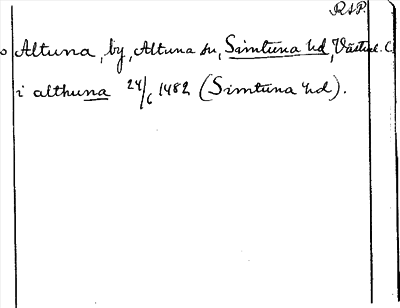 RAP.
Altuna, by, Altuna sn, Simtuna hd, Västml. C
i althuna 24/6 1482 (Simtuna hd).